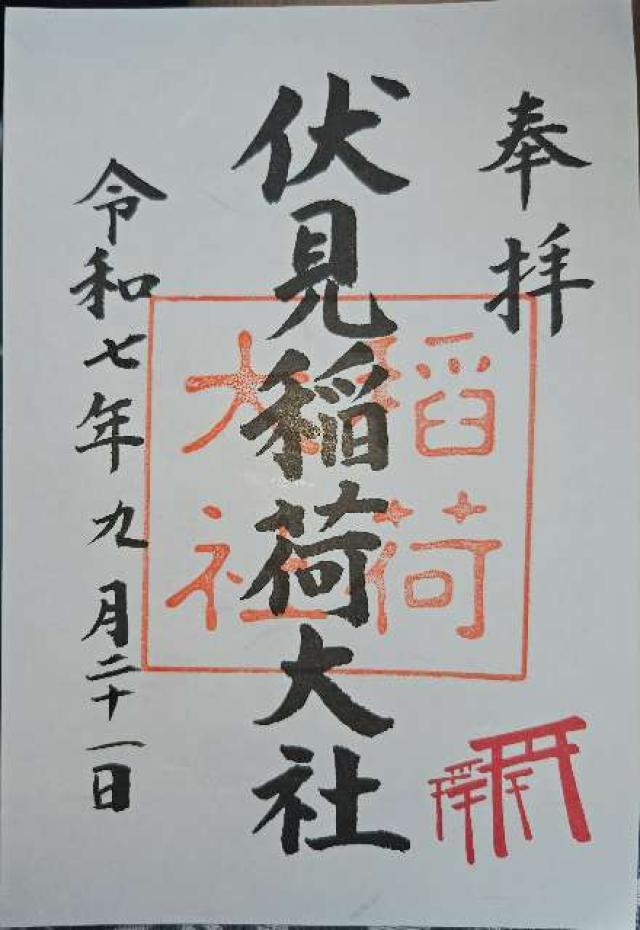 奉拝
伏見稲荷大社
稲荷
大社
令和七年九月二十一日